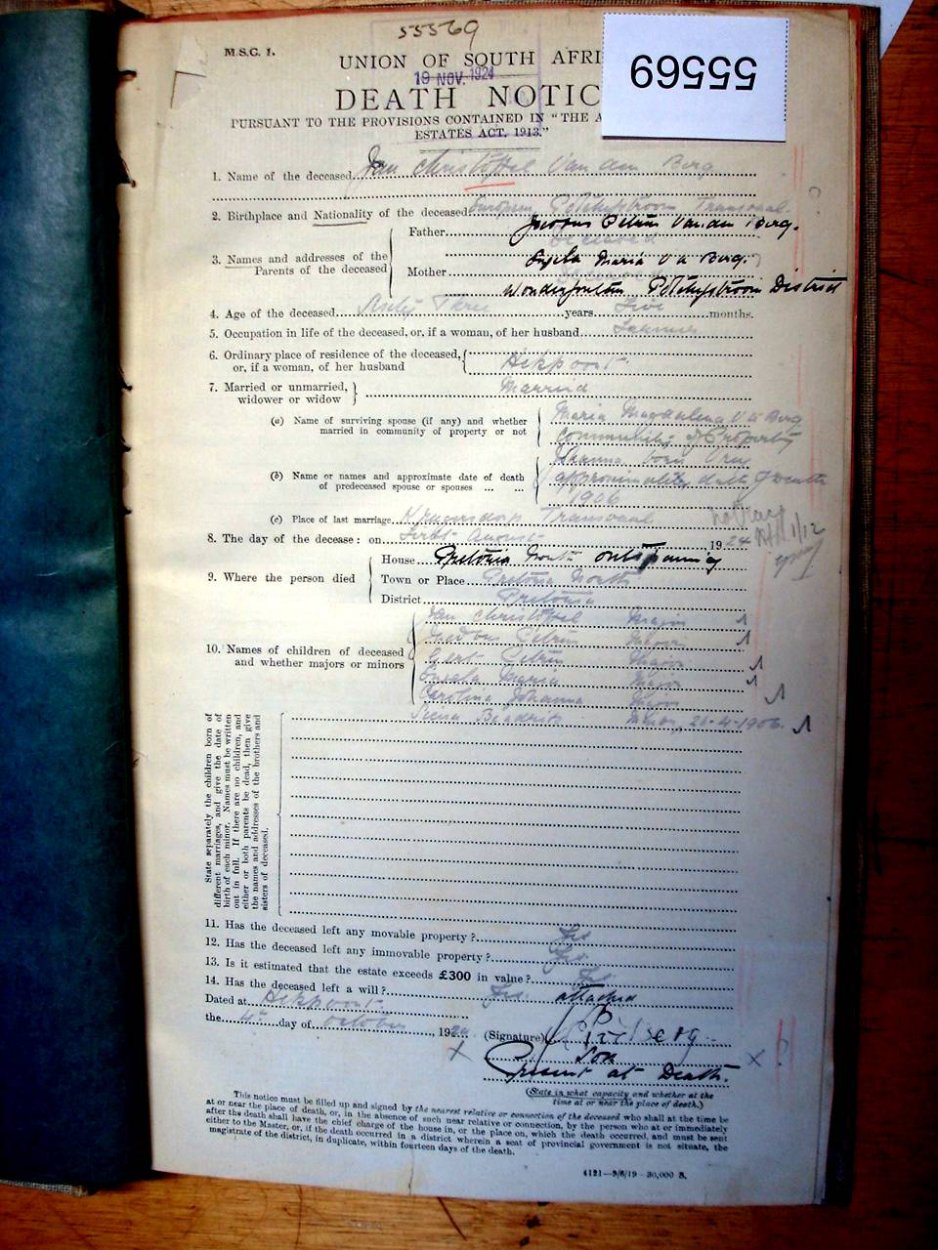 55569
M.S.C. 1.
UNION OF SOUTH AFRI
19 NOV. 1924
55569
DEATH NOTIC
PURSUANT TO THE PROVISIONS CONTAINED IN "THE A
ESTATES ACT, 1913."
1. Name of the deceased Jan Christoffel Van den Berg
2. Birthplace and Nationality of the deceased European Potchefstroom Transvaal
3. Names and addresses of the Parents of the deceased
Father Petrus Van den Berg.
deceased
Mother Maria v d Berg.
Wonderfontein Potchefstroom District
4. Age of the deceased Sixty Three years Five months.
5. Occupation in life of the deceased, or, if a woman, of her husband Farmer
6. Ordinary place of residence of the deceased, or, if a woman, of her husband Hekpoort
7. Married or unmarried, widower or widow Married
(a) Name of surviving spouse (if any) and whether married in community of property or not
Maria Magdalena V d Berg
Community of Property
(b) Name or names and approximate date of death of predeceased spouse or spouses ... ...
born
approximately date of death
1906
(c) Place of last marriage Krugersdorp Transvaal
8. The day of the decease: on First August 1924
1/12
9. Where the person died
House Pretoria North outspanning
Town or Place Pretoria North
District Pretoria
10. Names of children of deceased and whether majors or minors
Jan Christoffel Major
Petrus Major
Gert Petrus Major
Maria Major
Carolina Johanna Major
Minor 21-4-1906.
State separately the children born of
different marriages, and give the date of
birth of each minor. Names must be written
out in full. If there are no children, and
either or both parents be dead, then give
the names and addresses of the brothers and
sisters of deceased.
11. Has the deceased left any movable property? Yes
12. Has the deceased left any immovable property? Yes
13. Is it estimated that the estate exceeds £300 in value? Yes
14. Has the deceased left a will? Yes attached
Dated at Hekpoort
the 4th day of October 1924
(Signature)
Son
Present at Death.
(State in what capacity and whether at the
time at or near the place of death.)
This notice must be filled up and signed by the nearest relative or connection of the deceased who shall at the time be
at or near the place of death, or, in the absence of such near relative or connection, by the person who at or immediately
after the death shall have the chief charge of the house in, or the place on, which the death occurred, and must be sent
either to the Master, or, if the death occurred in a district wherein a seat of provincial government is not situate, the
magistrate of the district, in duplicate, within fourteen days of the death.